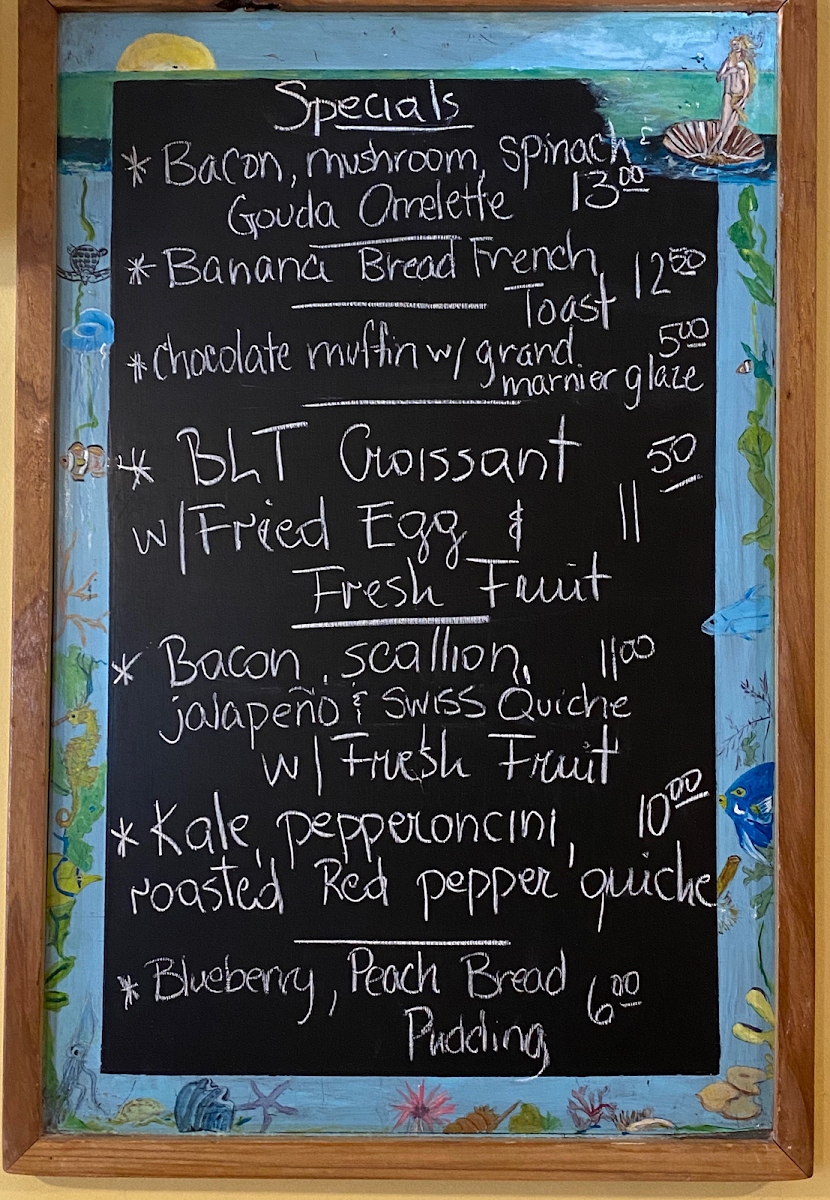 Specials
* Bacon, mushroom, spinach
Gouda Omelette 13.00
* Banana Bread French
Toast 12.50
* chocolate muffin w/ grand 5.00
marnier glaze
* BLT Croissant
w/ Fried Egg & 11.50
Fresh Fruit
* Bacon, scallion, 11.00
jalapeño & SWISS Quiche
w/ Fresh Fruit
* Kale, pepperoncini, 10.00
roasted Red pepper quiche
* Blueberry, Peach Bread 6.00
Pudding